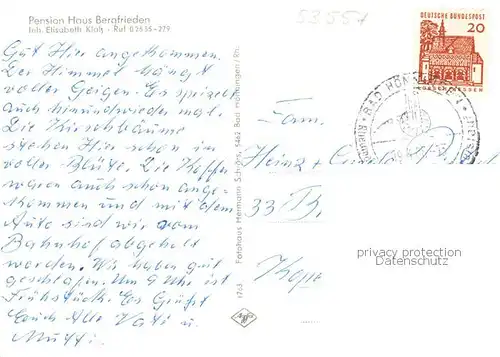 Pension Haus Bergfrieden
Inh. Elisabeth Klotz - Ruf 02635-279
53557
Gut Hier angekommen.
Der Himmel hängt
voller Geigen. Es spielt
auch hin und wieder mal.
Die Kirschbäume
stehen Hier schon in
voller Blüte. Die Koffer
waren auch schon ange-
kommen und mit dem
Auto sind wir vom
Bahnhof abgeholt
worden. Wir haben gut
geschlafen. Um 9 Uhr ist
Frühstück. Es Grüßt
Euch Alle Vati u.
Mutti.
Fotohaus Hermann
5462 Bad Hönningen/Rh.
DEUTSCHE BUNDESPOST
20
BAD HÖNNINGEN
Fam.
Heinz +
33
privacy protection
Datenschutz